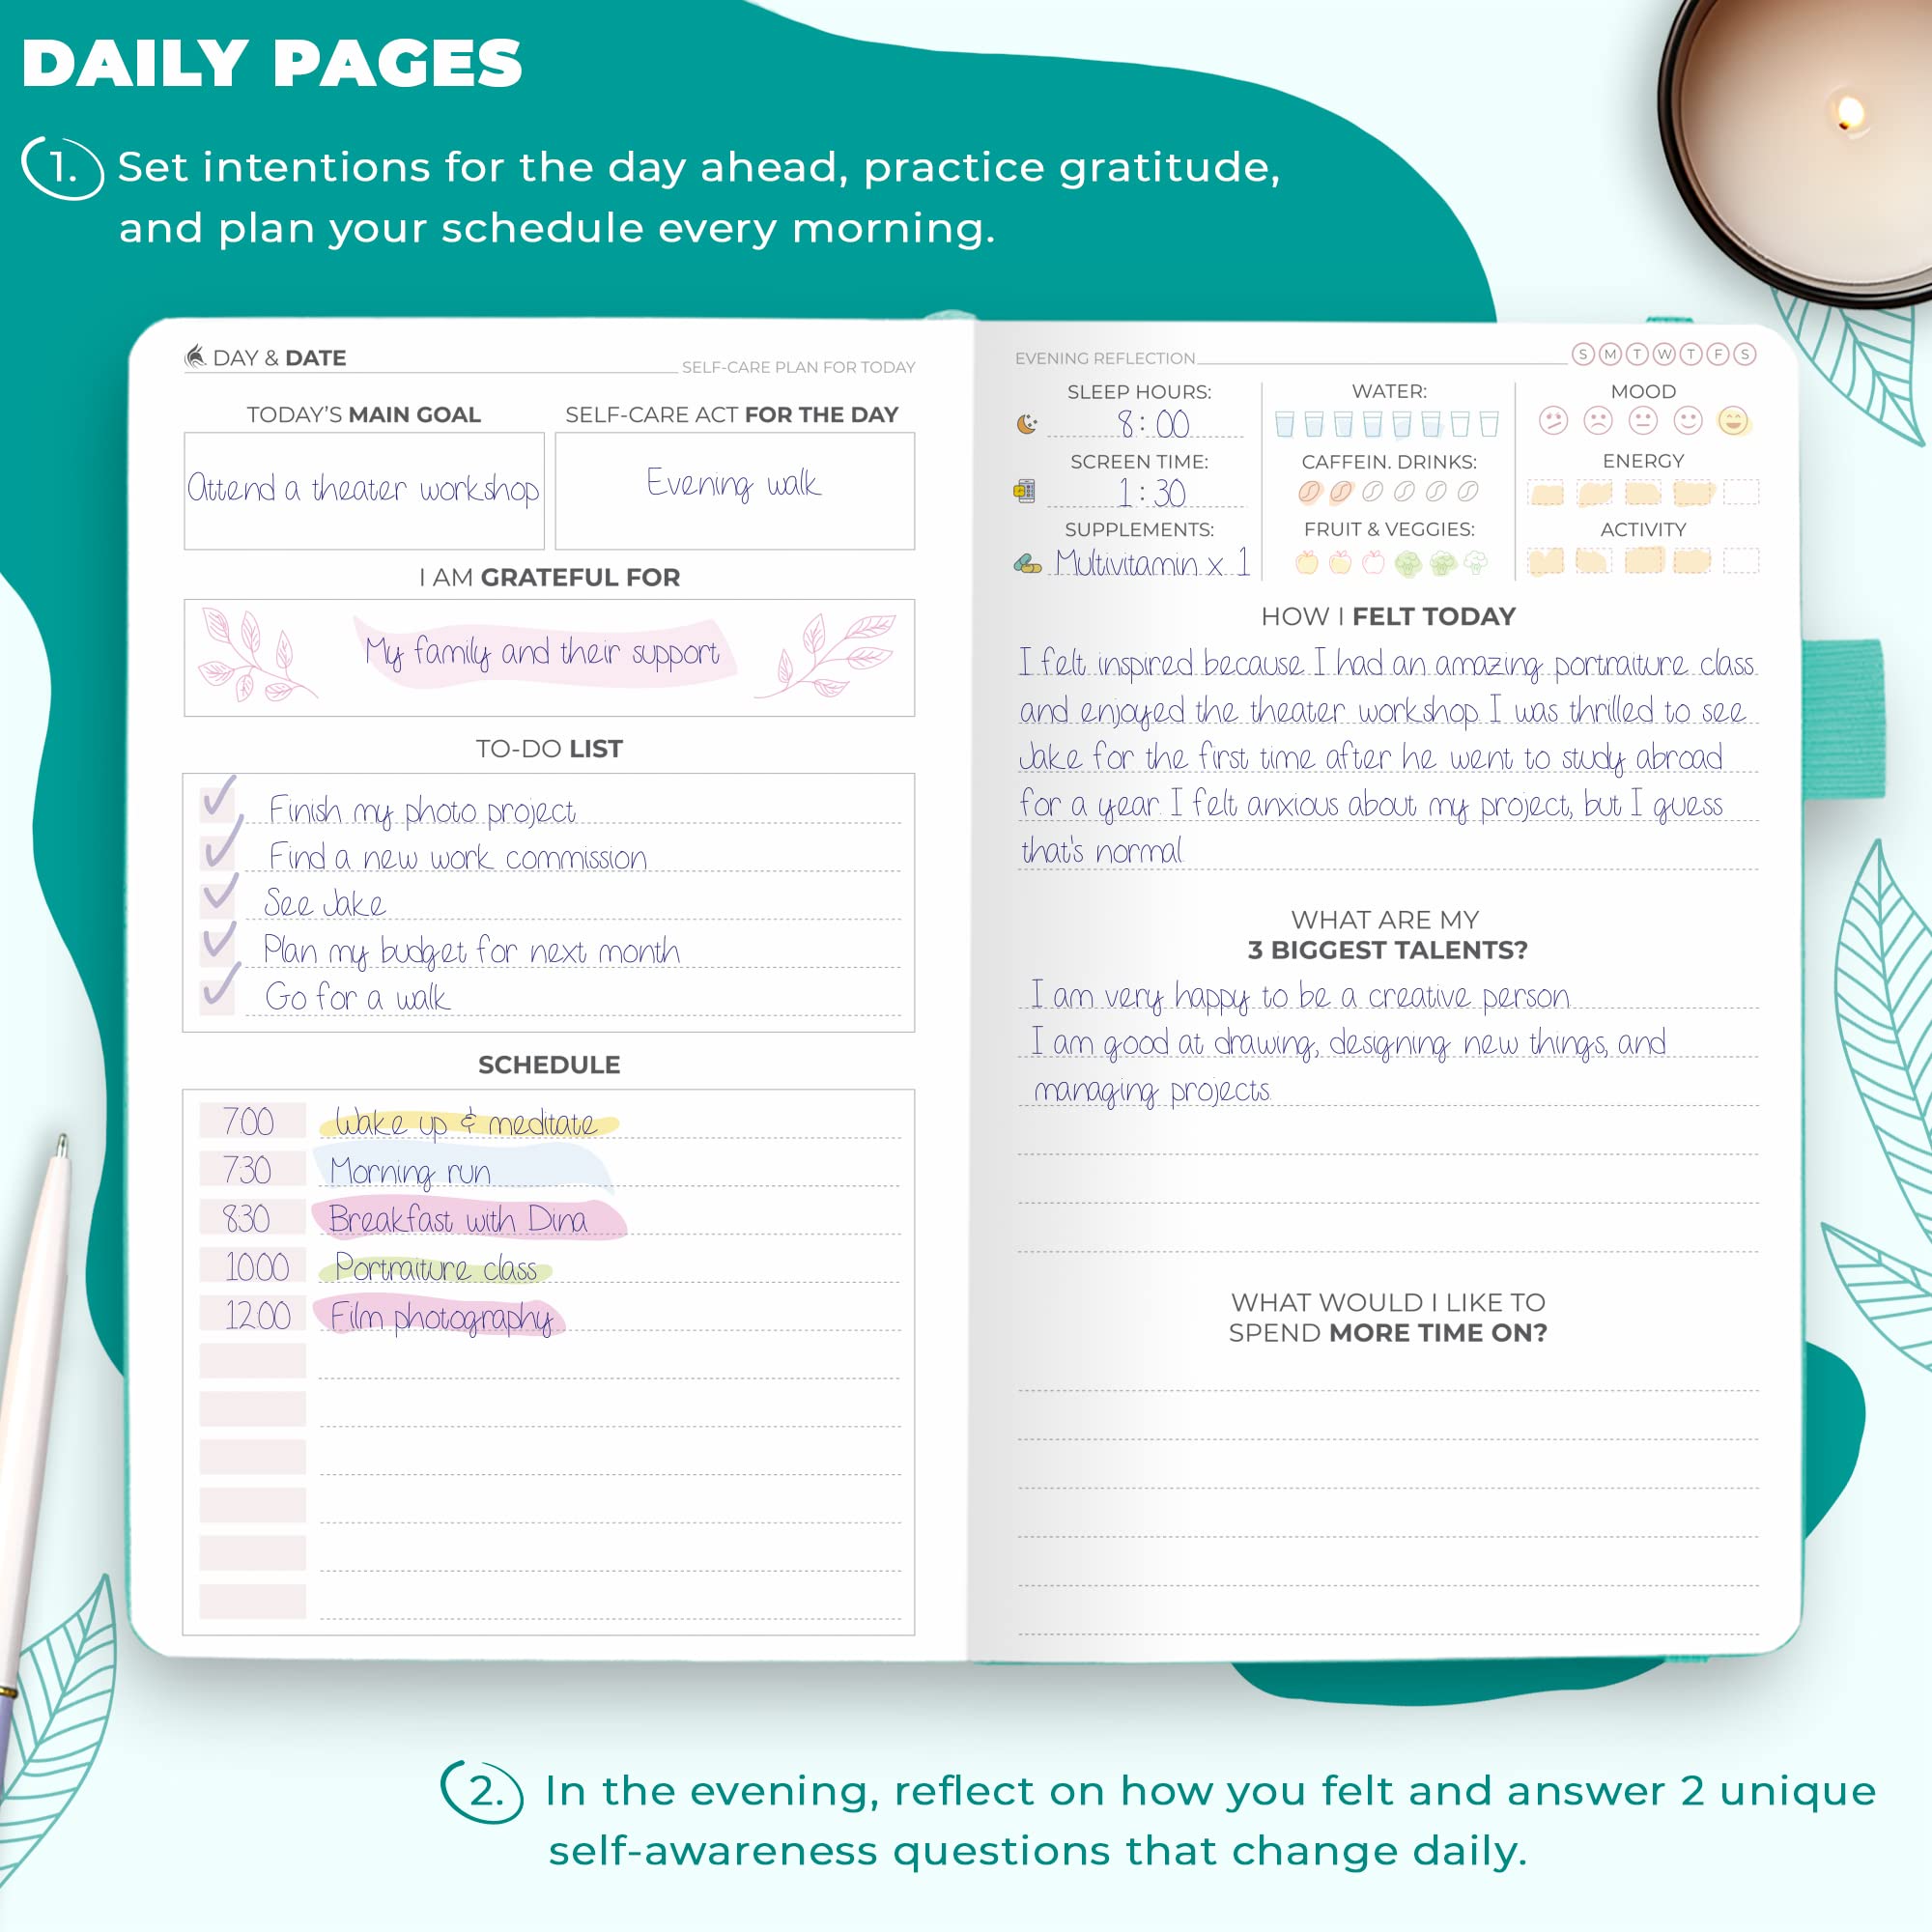 DAILY PAGES
1. Set intentions for the day ahead, practice gratitude,
and plan your schedule every morning.
DAY & DATE
SELF-CARE PLAN FOR TODAY
TODAY'S MAIN GOAL
Attend a theater workshop
SELF-CARE ACT FOR THE DAY
Evening walk
I AM GRATEFUL FOR
My family and their support
TO-DO LIST
Finish my photo project
Find a new work commission
See Jake
Plan my budget for next month
Go for a walk
SCHEDULE
7:00 Wake up & meditate
7:30 Morning run
8:30 Breakfast with Dina
10:00 Portraiture class
12:00 Film photography
EVENING REFLECTION
S M T W T F S
SLEEP HOURS:
8:00
SCREEN TIME:
1:30
SUPPLEMENTS:
Multivitamin x 1
WATER:
CAFFEIN. DRINKS:
FRUIT & VEGGIES:
MOOD
ENERGY
ACTIVITY
HOW I FELT TODAY
I felt inspired because I had an amazing portraiture class
and enjoyed the theater workshop. I was thrilled to see
Jake for the first time after he went to study abroad
for a year. I felt anxious about my project, but I guess
that's normal.
WHAT ARE MY
3 BIGGEST TALENTS?
I am very happy to be a creative person.
I am good at drawing, designing new things, and
managing projects.
WHAT WOULD I LIKE TO
SPEND MORE TIME ON?
2. In the evening, reflect on how you felt and answer 2 unique
self-awareness questions that change daily.